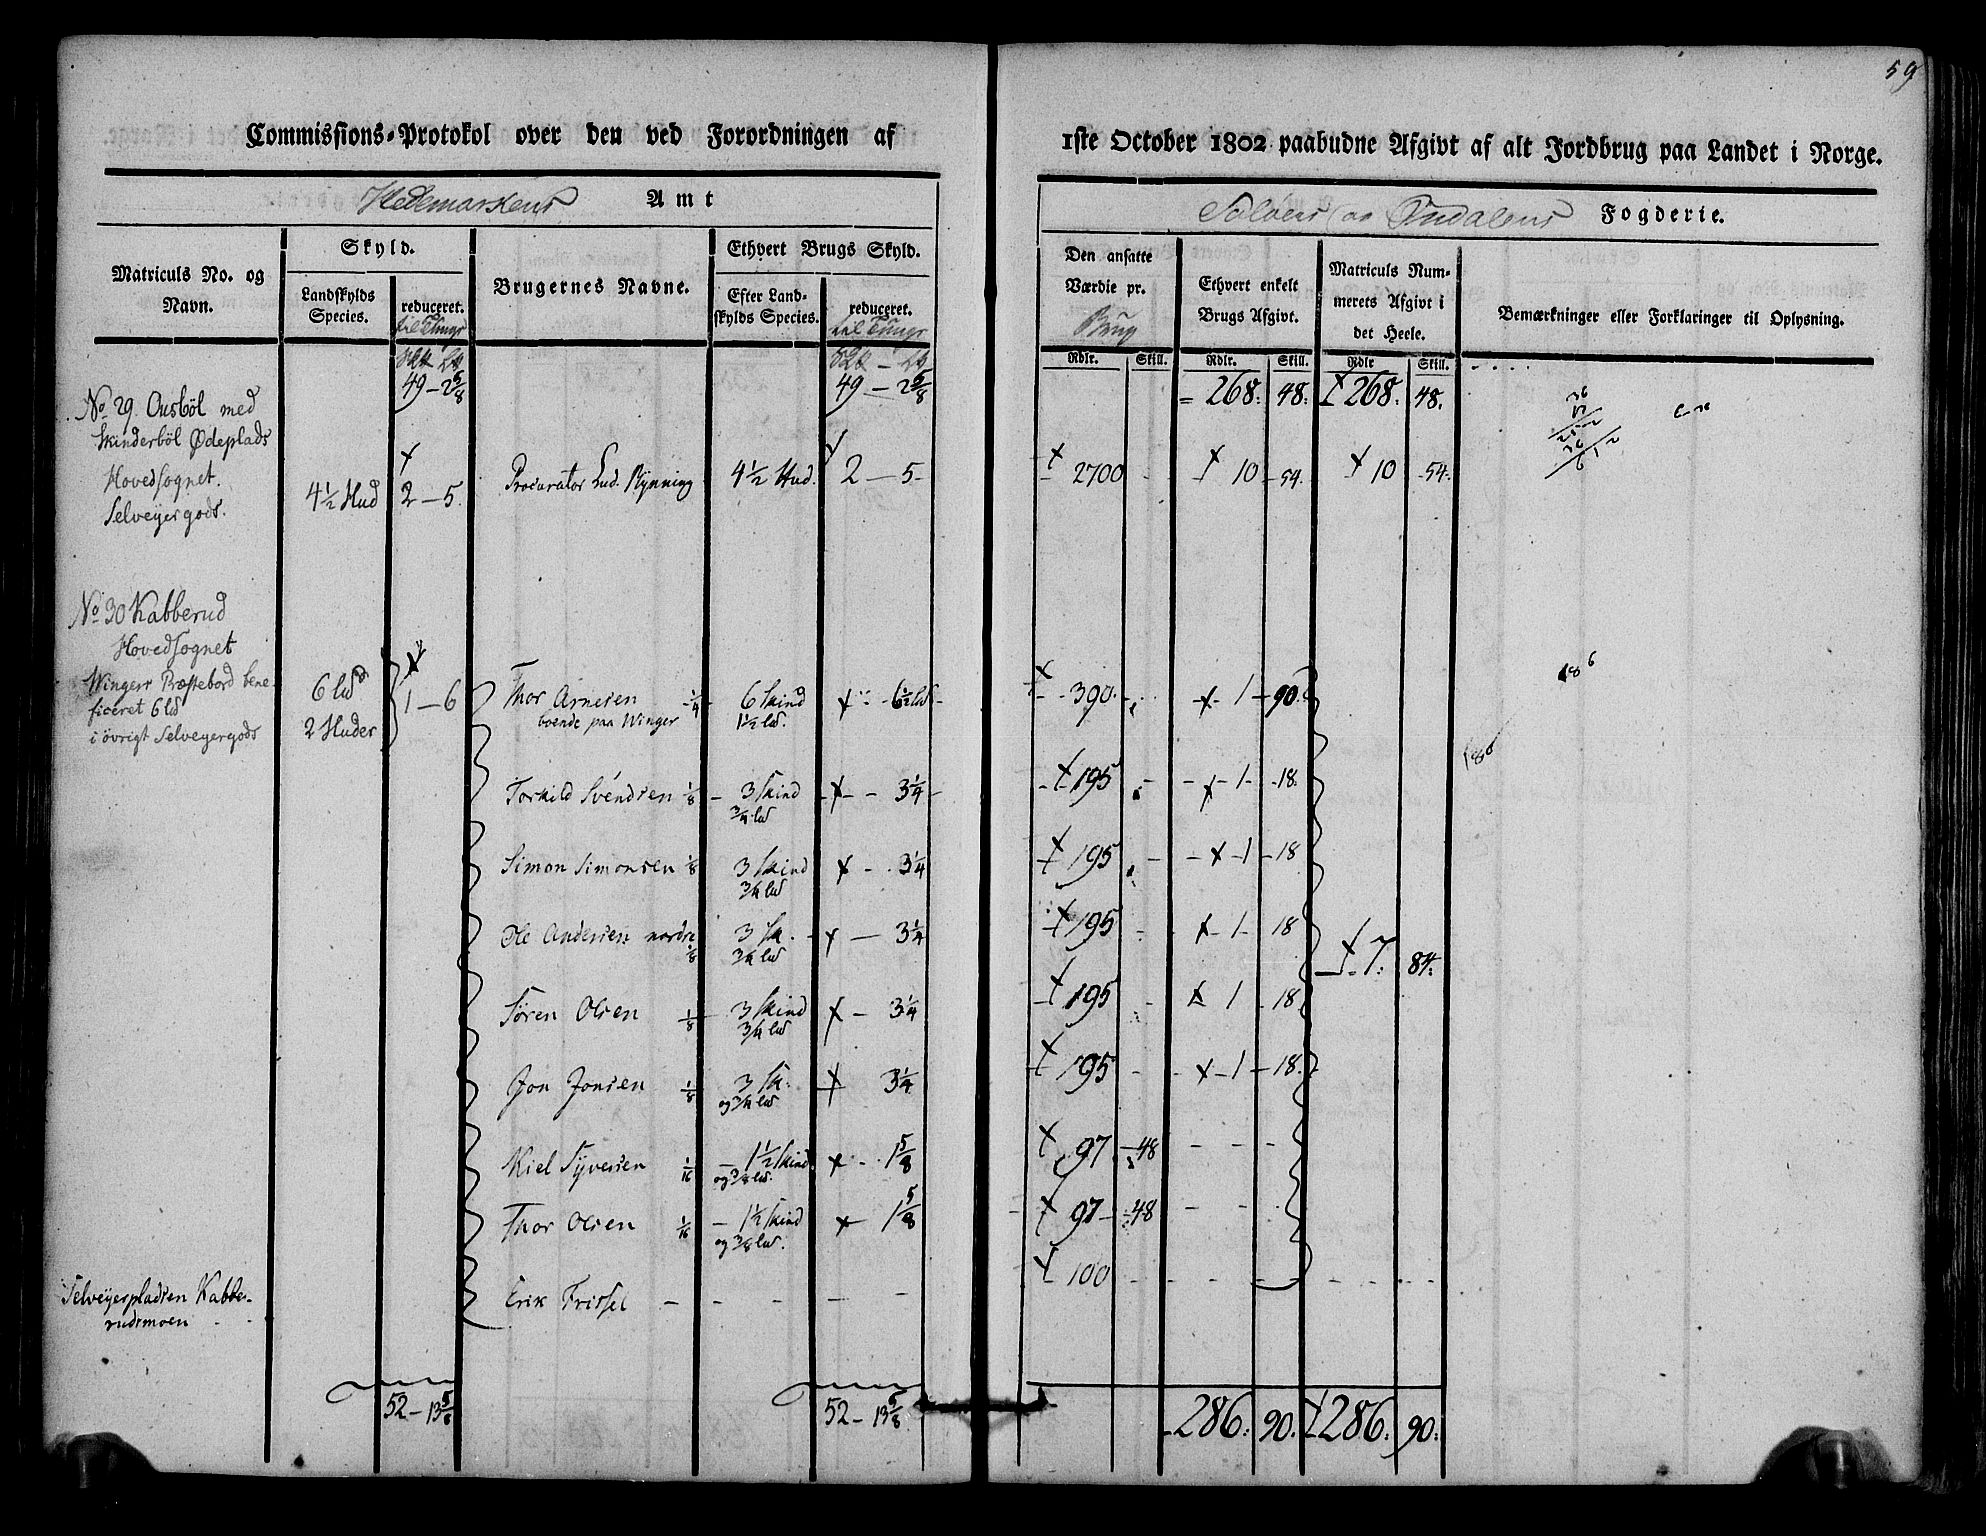 59
Commissions-Protokol over den ved Forordningen af
1ste October 1802 paabudne Afgivt af alt Jordbrug paa Landet i Norge.
Hedemarkens Amt
Soløers og Oudalens Fogderie.
Matriculs No. og Navn.
Skyld.
Landskylds Species.
reduceret.
til Tunge
Brugernes Navne.
Ethvert Brugs Skyld.
Efter Landskylds Species.
reduceret.
til Tunge
Den ansatte Værdie pr.
Brug
Ethvert enkelt Brugs Afgivt.
Matriculs Nummerets Afgivt i det Heele.
Bemærkninger eller Forklaringer til Oplysning.
Rdlr. Skill. Rdlr. Skill. Rdlr Skill.
49 – 2 5/8 49 – 2 5/8 = 268: 48: 268: 48.
No 29. Ousböl med
Skinderböl Ødeplads
Hovedsognet.
Selveyergods.
4 1/2 Hud 2 – 5. Procurator Lud. Rynning 4 1/2 Hud. 2 – 5 – 2700 – 10 – 54. 10 – 54:
No 30 Kabberud
Hovedsognet
Wingers Præstebord bene-
ficeret 6 lb
i övrigt Selveyergods
6 lb
2 Huder
1 – 6
Thor Arnesen 1/4 6 Skind 6 1/2 lb – 390. – 1 – 90.
boende paa Winger 1 1/2 lb.
186
186
Torkild Svendsen 1/8 – 3 Skind – 3 1/4 – 195 – 1 – 18.
3/4 lb
Simon Simonsen 1/8 3 Skind – 3 1/4 195 – 1 – 18
3/4 lb
Ole Andersen nordre 1/8 3 Sk. – 3 1/4 195 – 1 – 18
3/4 lb
7: 84:
Sören Olsen 1/8 3 Skind – 3 1/4 195 1 – 18
3/4 lb
Jon Jonsen 1/8 3 Sk. 3 1/4 195 – 1 – 18.
og 3/4 lb
Kiel Syversen 1/16 – 1 1/2 Skind 1 5/8 97 – 48 – – –
og 3/8 lb.
Thor Olsen 1/16 – 1 1/2 Skind 1 5/8 97 – 48 – –
og 3/8 lb.
Selveyerpladsen Kabbe-
rudsmoen
Erik Frissel – – – – – 100 – – – – – –
52 – 13 5/8 52 – 13 5/8 286. 90. 286. 90: